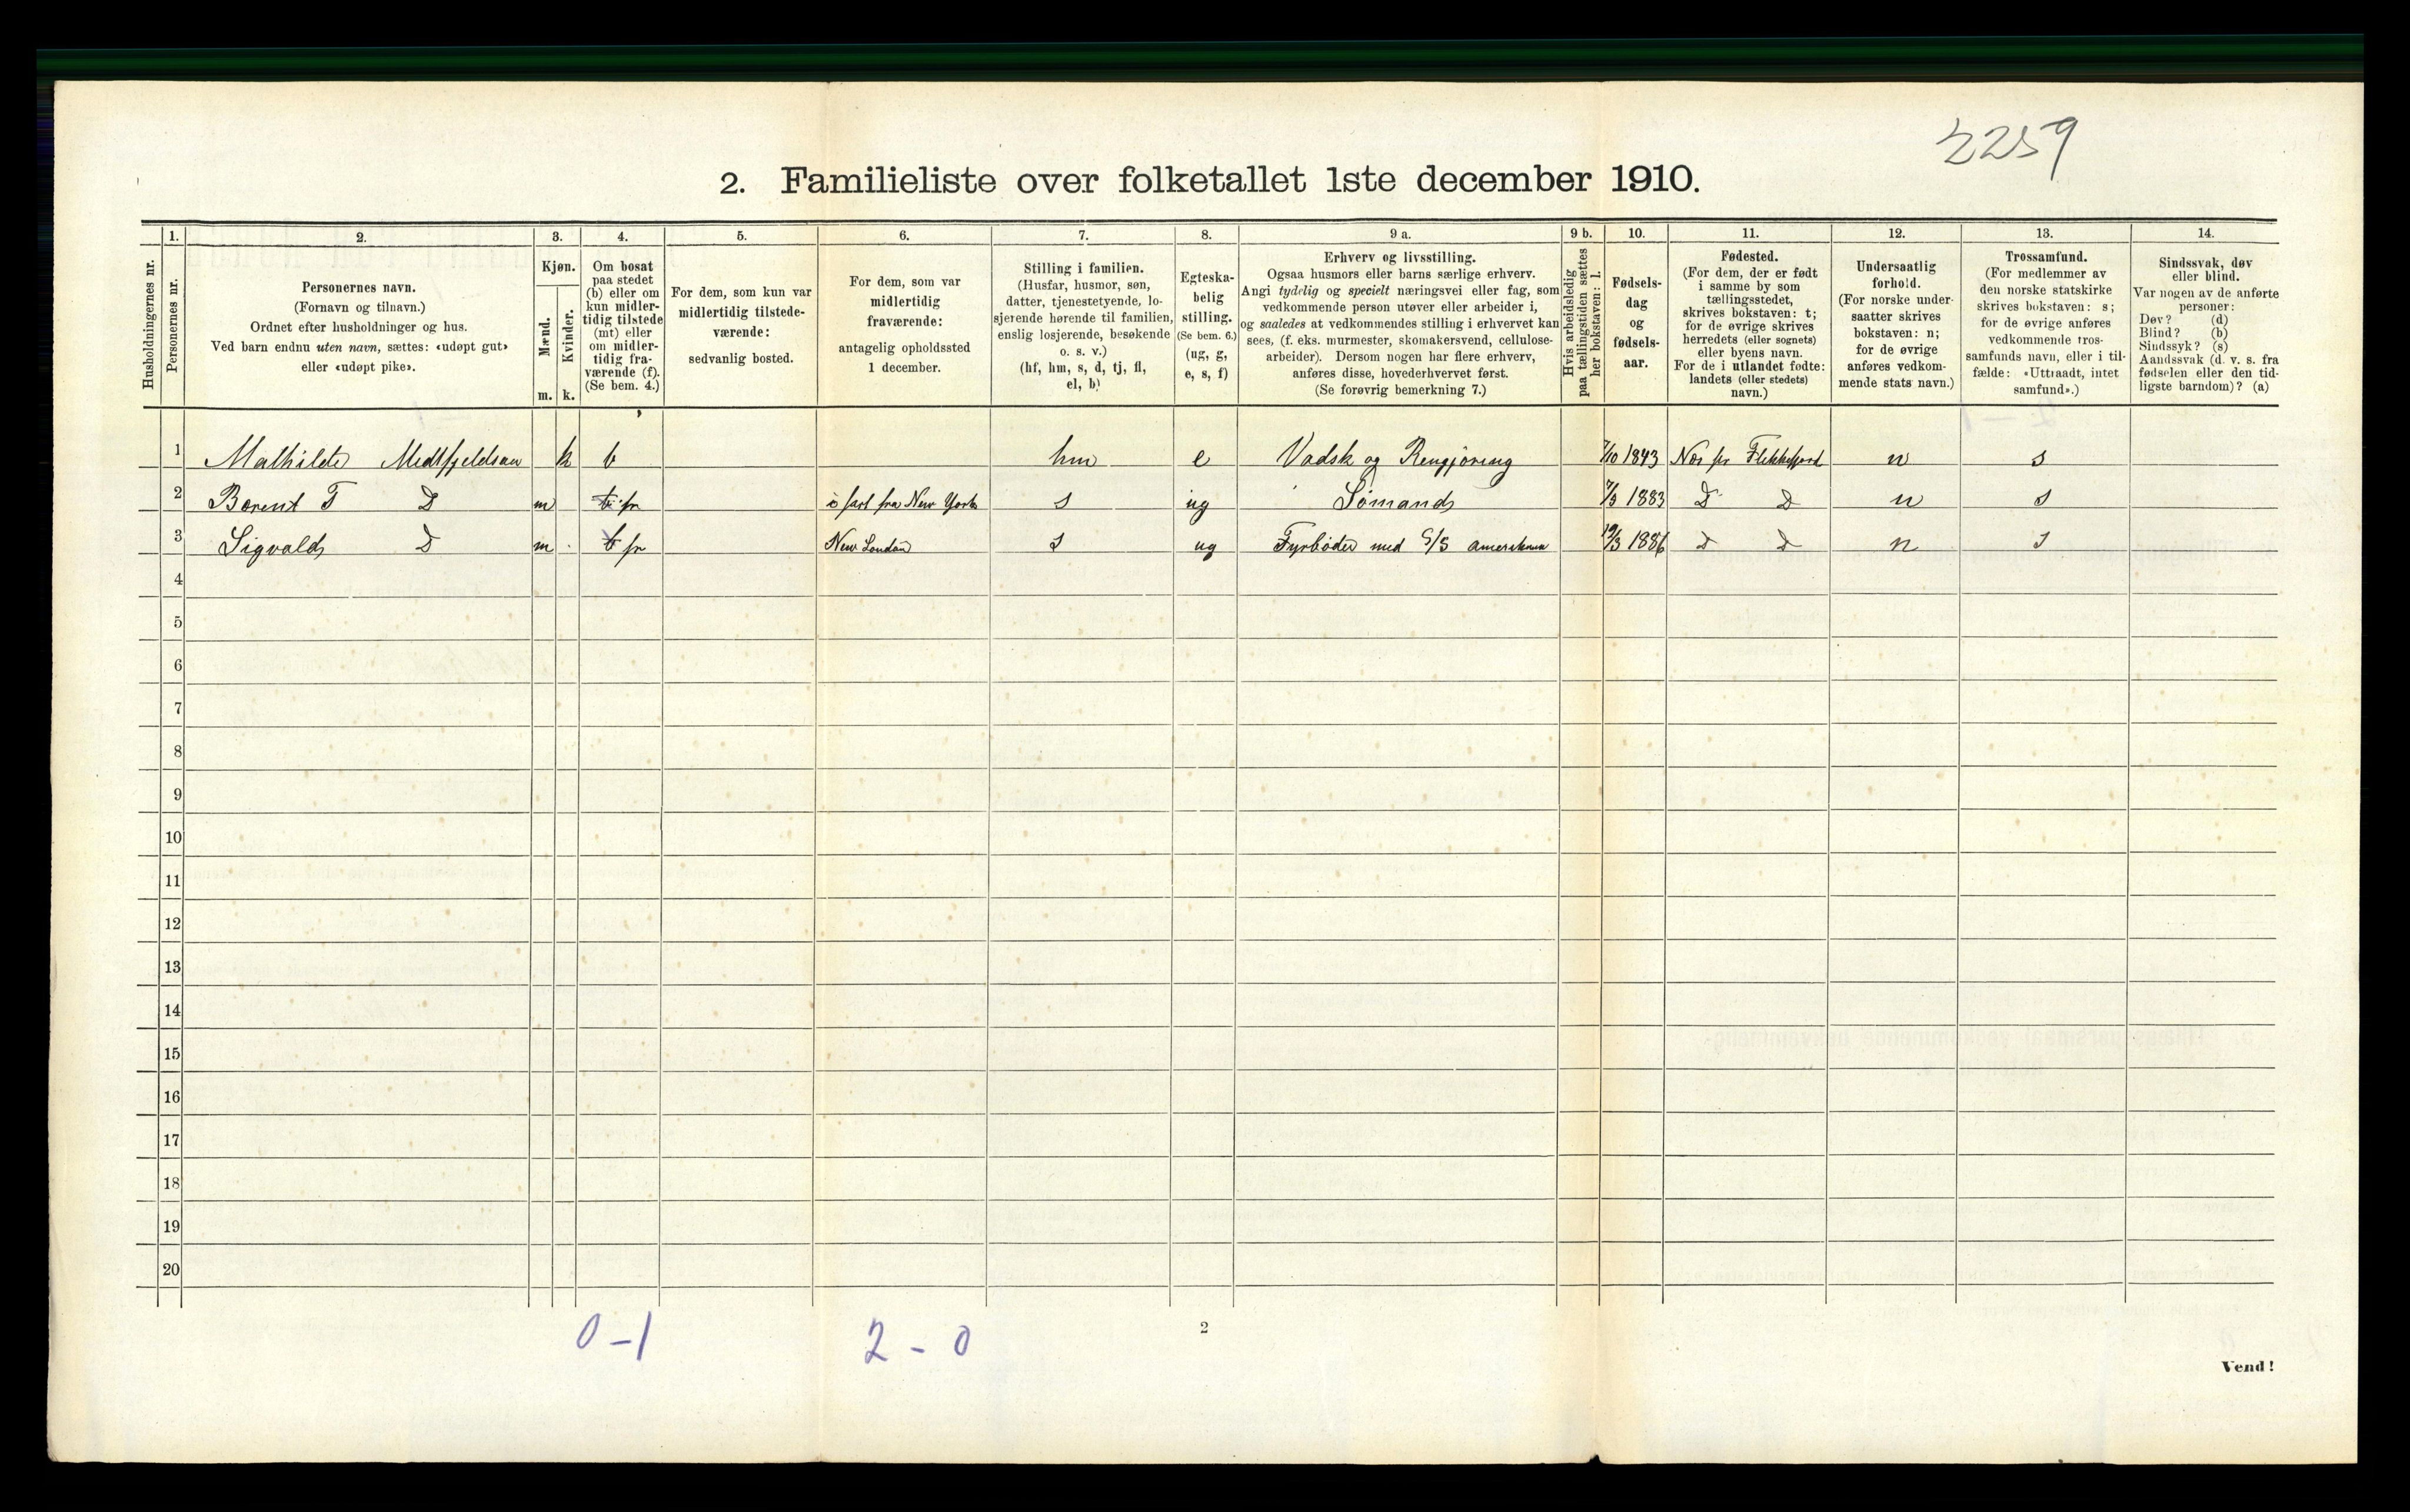 2259
2. Familieliste over folketallet 1ste december 1910.
Husholdningernes nr.
1.
Personernes nr.
2.
Personernes navn.
(Fornavn og tilnavn.)
Ordnet efter husholdninger og hus.
Ved barn endnu uten navn, sættes: «udøpt gut»
eller «udøpt pike».
3.
Kjøn.
Mænd.
Kvinder.
m. k.
4.
Om bosat
paa stedet
(b) eller om
kun midler-
tidig tilstede
(mt) eller
om midler-
tidig fra-
værende (f).
(Se bem. 4.)
5.
For dem, som kun var
midlertidig tilstede-
værende:
sedvanlig bosted.
6.
For dem, som var
midlertidig
fraværende:
antagelig opholdssted
1 december.
7.
Stilling i familien.
(Husfar, husmor, søn,
datter, tjenestetyende, lo-
sjerende hørende til familien,
enslig losjerende, besøkende
o. s. v.)
(hf, hm, s, d, tj, fl,
el, b)
8.
Egteska-
belig
stilling.
(Se bem. 6.)
(ug, g,
e, s, f)
9 a.
Erhverv og livsstilling.
Ogsaa husmors eller barns særlige erhverv.
Angi tydelig og specielt næringsvei eller fag, som
vedkommende person utøver eller arbeider i,
og saaledes at vedkommendes stilling i erhvervet kan
sees, (f. eks. murmester, skomakersvend, cellulose-
arbeider). Dersom nogen har flere erhverv,
anføres disse, hovederhvervet først.
(Se forøvrig bemerkning 7.)
9 b.
Hvis arbeidsledig
paa tællingstiden sættes
her bokstaven: l.
10.
Fødsels-
dag
og
fødsels-
aar.
11.
Fødested.
(For dem, der er født
i samme by som
tællingsstedet,
skrives bokstaven: t;
for de øvrige skrives
herredets (eller sognets)
eller byens navn.
For de i utlandet fødte:
landets (eller stedets)
navn.)
12.
Undersaatlig
forhold.
(For norske under-
saatter skrives
bokstaven: n;
for de øvrige
anføres vedkom-
mende stats navn.)
13.
Trossamfund.
(For medlemmer av
den norske statskirke
skrives bokstaven: s;
for de øvrige anføres
vedkommende tros-
samfunds navn, eller i til-
fælde: «Uttraadt, intet
samfund».)
14.
Sindssvak, døv
eller blind.
Var nogen av de anførte
personer:
Døv? (d)
Blind? (b)
Sindssyk? (s)
Aandssvak (d. v. s. fra
fødselen eller den tid-
ligste barndom)? (a)
1 Mathilde k b hm e Vadsk og Rengjøring 7/10 1843 Nes pr Flekkefjord n s
2 Berent T D m b fr i fart fra New York s ug Sømand 7/3 1883 D D n s
3 Sigvald D m b fr New London s ug Fyrbøder med S/S 19/3 1886 D D n s
4
5
6
7
8
9
10
11
12
13
14
15
16
17
18
19
20
0-1 2-0
2
Vend!